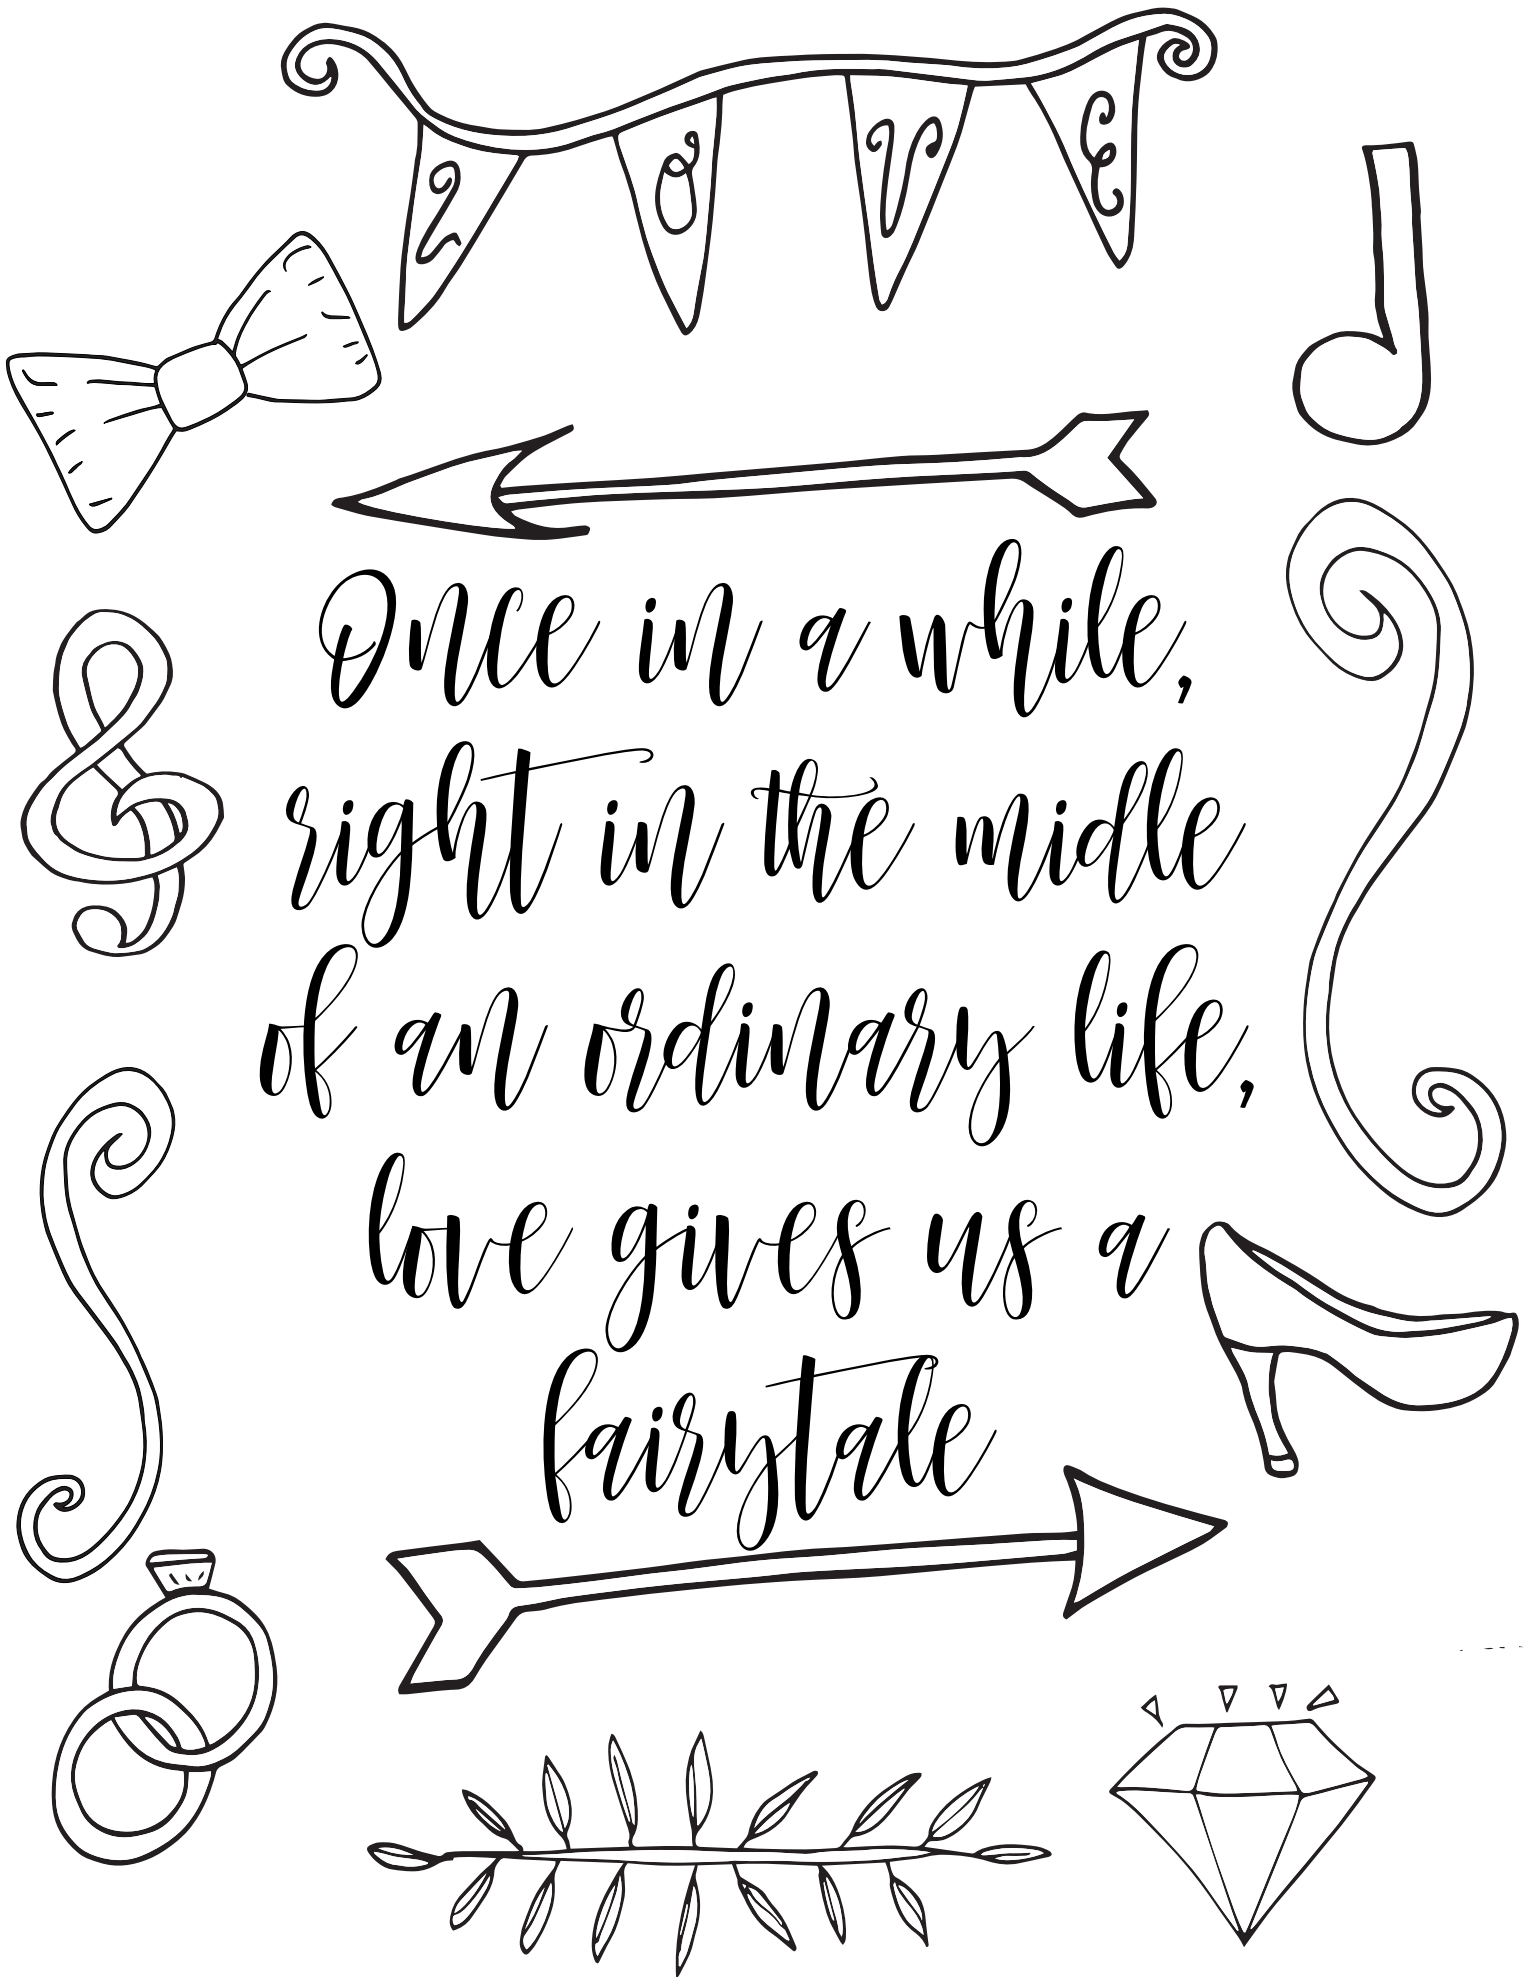 LOVE
Once in a while,
right in the midle
of an ordinary life,
love gives us a
fairytale